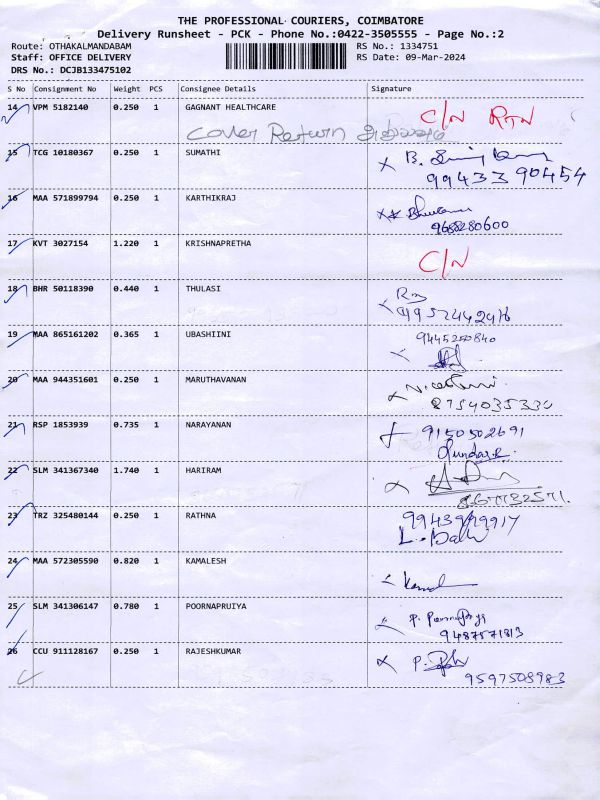 THE PROFESSIONAL COURIERS, COIMBATORE
Delivery Runsheet - PCK - Phone No.:0422-3505555 - Page No.:2
Route: OTHAKALMANDABAM RS No.: 1334751
Staff: OFFICE DELIVERY RS Date: 09-Mar-2024
DRS No.: DCJB133475102
S No Consignment No Weight PCS Consignee Details Signature
14 VPM 5182140 0.250 1 GAGNANT HEALTHCARE C/N RTN
Cover Return
15 TCG 10180367 0.250 1 SUMATHI B.
99433 90454
16 MAA 571899794 0.250 1 KARTHIKRAJ
9688280600
17 KVT 3027154 1.220 1 KRISHNAPRETHA C/N
18 BHR 50118390 0.440 1 THULASI
9957442976
19 MAA 865161202 0.365 1 UBASHIINI 9445250840
20 MAA 944351601 0.250 1 MARUTHAVANAN
8754035330
21 RSP 1853939 0.735 1 NARAYANAN 9150502691
22 SLM 341367340 1.740 1 HARIRAM
23 TRZ 325480144 0.250 1 RATHNA
24 MAA 572305590 0.820 1 KAMALESH
25 SLM 341306147 0.780 1 POORNAPRUIYA
9487571813
26 CCU 911128167 0.250 1 RAJESHKUMAR P.
9597508983